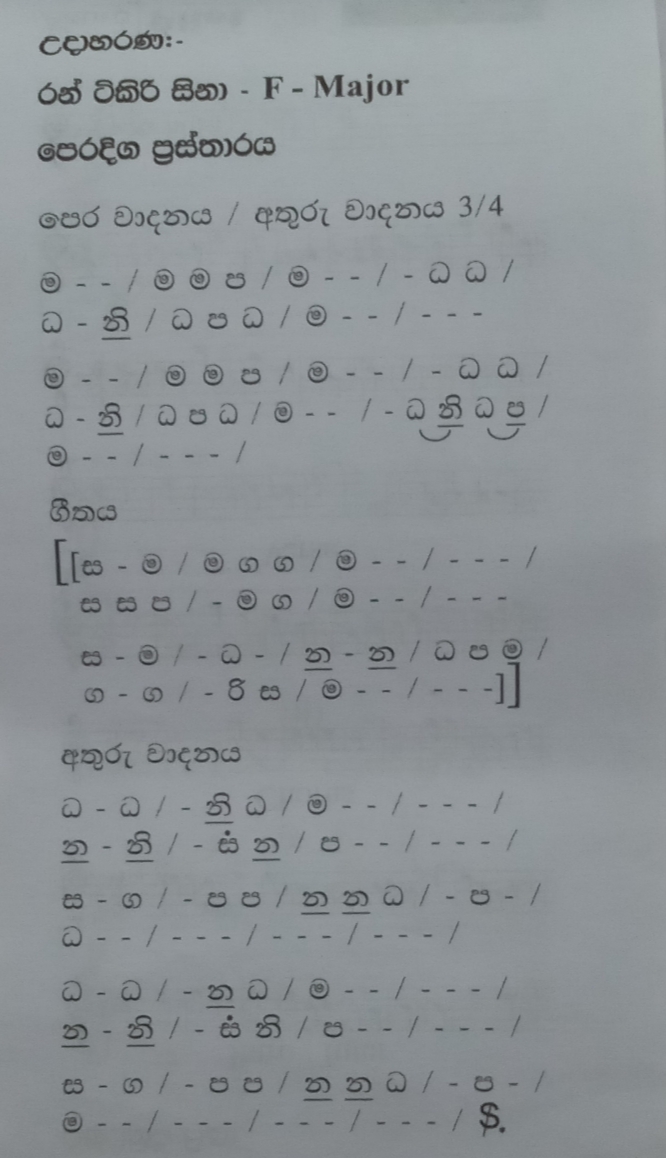 උදාහරණ:-
රන් ටිකිරි සිනා - F - Major
පෙරදිග ප්‍රස්තාරය
පෙර වාදනය / අතුරු වාදනය 3/4
ම - - / ම ම ප / ම - - / - ධ ධ /
ධ - නි / ධ ප ධ / ම - - / - - -
ම - - / ම ම ප / ම - - / - ධ ධ /
ධ - නි / ධ ප ධ / ම - - / - ධ නි ධ ප /
ම - - / - - - /
ගීතය
[[ස - ම / ම ග ග / ම - - / - - - /
ස ස ප / - ම ග / ම - - / - - -
ස - ම / - ධ - / න - න / ධ ප ම /
ග - ග / - රි ස / ම - - / - - -]]
අතුරු වාදනය
ධ - ධ / - නි ධ / ම - - / - - - /
න - නි / - සං න / ප - - / - - - /
ස - ග / - ප ප / න න ධ / - ප - /
ධ - - / - - - / - - - / - - - /
ධ - ධ / - න ධ / ම - - / - - - /
න - නි / - සං නි / ප - - / - - - /
ස - ග / - ප ප / න න ධ / - ප - /
ම - - / - - - / - - - / - - - / $.